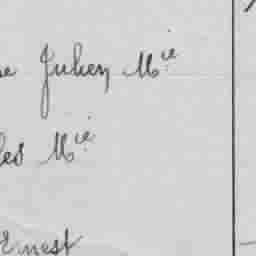 Juhen Mie
les Mie
Ernest